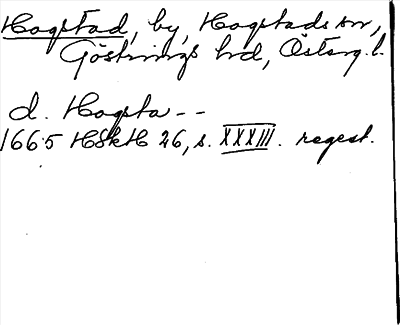 Hogstad, by, Hogstads sn,
Göstrings hd, Österg. l.
d. Hogsta --
1665 HSkH 26, s. XXXIII. regest.